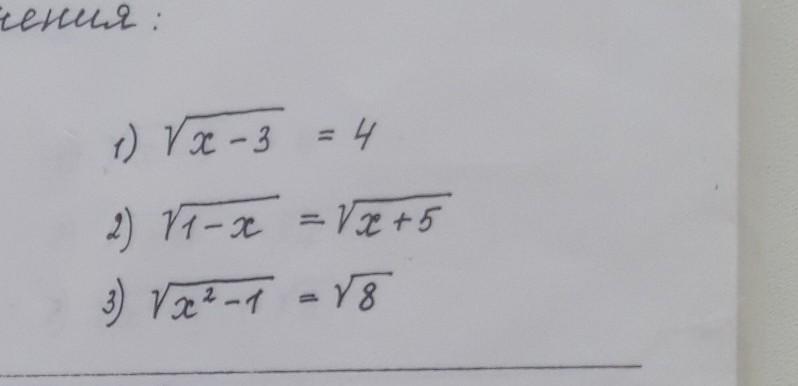 нения:
1) √x-3 = 4
2) √1-x = √x+5
3) √x²-1 = √8